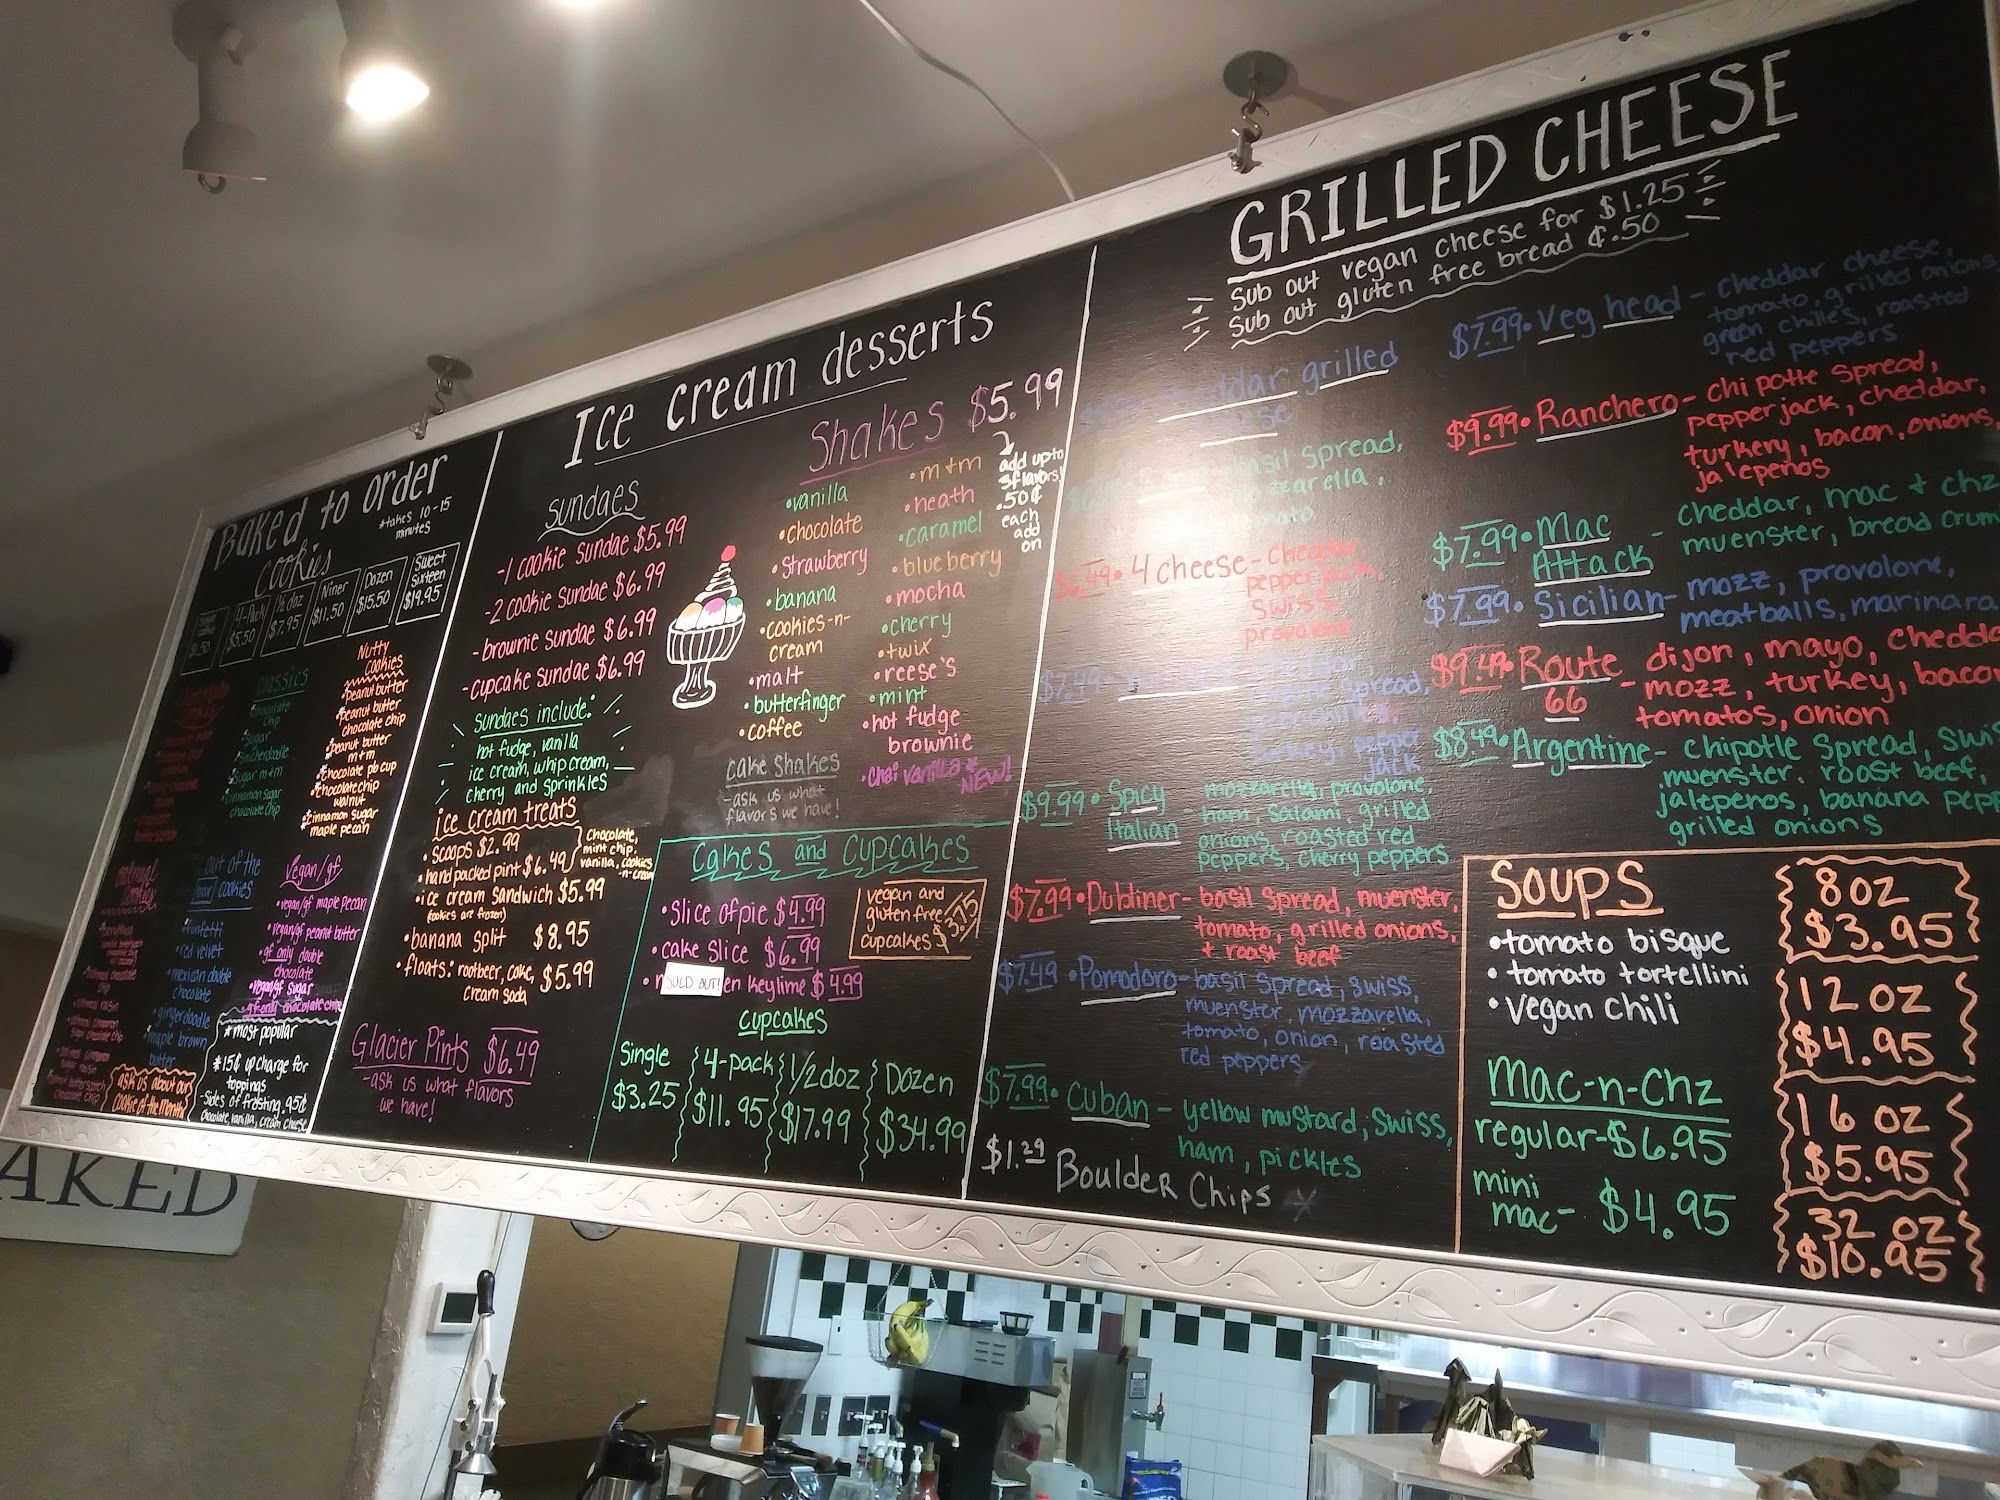 Baked to order
*takes 10-15
minutes
Cookies
4-Pack
$5.50
½ doz
$7.95
Niner
$11.50
Dozen
$15.50
Sweet
Sixteen
$19.95
Classics
chocolate
chip
*Sugar
*Snickerdoodle
*Sugar m+m
*cinnamon sugar
chocolate chip
Nutty
Cookies
*peanut butter
*peanut butter
chocolate chip
*peanut butter
m+m
*chocolate pb cup
*chocolate chip
walnut
*cinnamon sugar
maple pecan
oatmeal
cookies
out of the
box/cookies
*funfetti
•red velvet
•mexican double
chocolate
•gingerdoodle
*maple brown
butter
Vegan/gf
•vegan/gf maple pecan
•vegan/gf peanut butter
•gf only double
chocolate
•vegan/gf sugar
•gf only chocolate chip
ask us about our
cookie of the month
*most popular
*15¢ up charge for
toppings
-Sides of frosting .95¢
chocolate, vanilla, cream cheese
Ice cream desserts
Sundaes
-1 cookie Sundae $5.99
-2 cookie Sundae $6.99
-brownie Sundae $6.99
-cupcake Sundae $6.99
Sundaes include:
hot fudge, vanilla
ice cream, whip cream,
cherry and sprinkles
ice cream treats
•scoops $2.99
•hand packed pint $6.49
chocolate,
mint chip,
vanilla, cookies
-n-cream
•ice cream sandwich $5.99
(cookies are frozen)
•banana split $8.95
•floats: rootbeer, coke, $5.99
cream soda
Glacier Pints $6.49
-ask us what flavors
we have!
Shakes $5.99
add up to
3 flavors!
.50¢
each
add
on
•vanilla
•chocolate
•Strawberry
•banana
•cookies-n-
cream
•malt
•butterfinger
•coffee
•m+m
•heath
•caramel
•blueberry
•mocha
•cherry
•twix
•reese's
•mint
•hot fudge
brownie
•chai vanilla *
NEW!
cake shakes
-ask us what
flavors we have!
Cakes and Cupcakes
•Slice of pie $4.99
•cake Slice $6.99
SOLD OUT!
en keylime $4.99
vegan and
gluten free
cupcakes $3.75
Cupcakes
Single
$3.25
4-pack
$11.95
1/2 doz
$17.99
Dozen
$34.99
GRILLED CHEESE
Sub out vegan cheese for $1.25
Sub out gluten free bread ¢.50
Cheddar grilled
basil spread,
mozzarella,
tomato
$6.49• 4 cheese- Cheddar,
pepperjack,
Swiss,
provolone
$7.49•
spread,
pepper
jack
$9.99• Spicy
Italian
- mozzarella, provolone,
ham, salami, grilled
onions, roasted red
peppers, cherry peppers
$7.99• Dubliner- basil spread, muenster,
tomato, grilled onions,
+ roast beef
$7.49 •Pomodoro- basil spread, swiss,
muenster, mozzarella,
tomato, onion, roasted
red peppers
$7.99• Cuban - yellow mustard, swiss,
ham, pickles
$1.29 Boulder Chips
$7.99• Veg head - cheddar cheese,
tomato, grilled onions,
green chiles, roasted
red peppers
$9.99• Ranchero- chipotle spread,
pepperjack, cheddar,
turkery, bacon, onions,
jalepeños
$7.99• Mac
Attack
- cheddar, mac + chz
muenster, bread crum
$7.99• Sicilian- mozz, provolone,
meatballs, marinara
$9.49• Route
66
- dijon, mayo, chedda
mozz, turkey, baco
tomatos, onion
$8.49• Argentine- chipotle spread, swis
muenster, roast beef,
jalepeños, banana pepp
grilled onions
SOUPS
•tomato bisque
•tomato tortellini
•Vegan chili
Mac-n-Chz
regular-$6.95
mini
mac- $4.95
8oz
$3.95
12 oz
$4.95
16 oz
$5.95
32 oz
$10.95
AKED